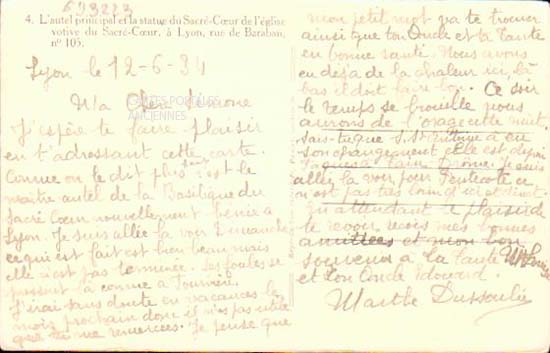 693223
4. L'autel principal et la statue du Sacré-Cœur de l'église
votive du Sacré-Cœur, à Lyon, rue de Baraban,
nº 105.
Lyon le 12-6-34
Ma Chère Simone
CARTES POSTALES
ANCIENNES
J'espère te faire plaisir
en t'adressant cette carte.
Comme on te dit plus haut c'est le
maître autel de la Basilique du
Sacré Cœur nouvellement bénie à
Lyon. Je suis allée la voir Dimanche
ce qui est fait est bien beau mais
elle n'est pas terminée. Les foules se
pressent là comme à Fourvière.
J'irai sans doute en vacances le
mois prochain donc il n'est pas utile
que tu me remercies. Je pense que
mon petit mot va te trouver
ainsi que ton Oncle et ta Tante
en bonne santé. Nous avons
eu déjà de la chaleur ici, là
bas il doit faire bon. Ce soir
le temps se brouille nous
aurons de l'orage cette nuit.
Sais-tu que S. a eu
son changement. Elle est depuis
Drôme. Je suis
allée la voir pour Pentecôte ce
n'est pas très loin d'ici et direct.
En attendant le plaisir de
te revoir reçois mes bonnes
amitiées et mon bon
souvenir à ta Tante
et ton Oncle Edouard.
Marthe